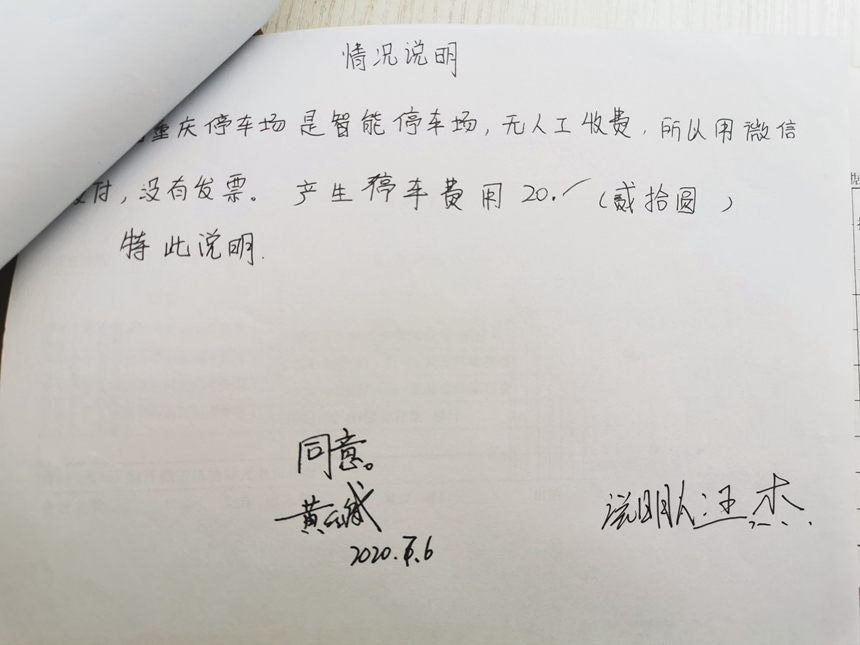 情况说明
重庆停车场是智能停车场,无人工收费,所以用微信
付,没有发票。产生停车费用20.(贰拾圆)
特此说明.
同意。
说明人汪杰
2020. .6